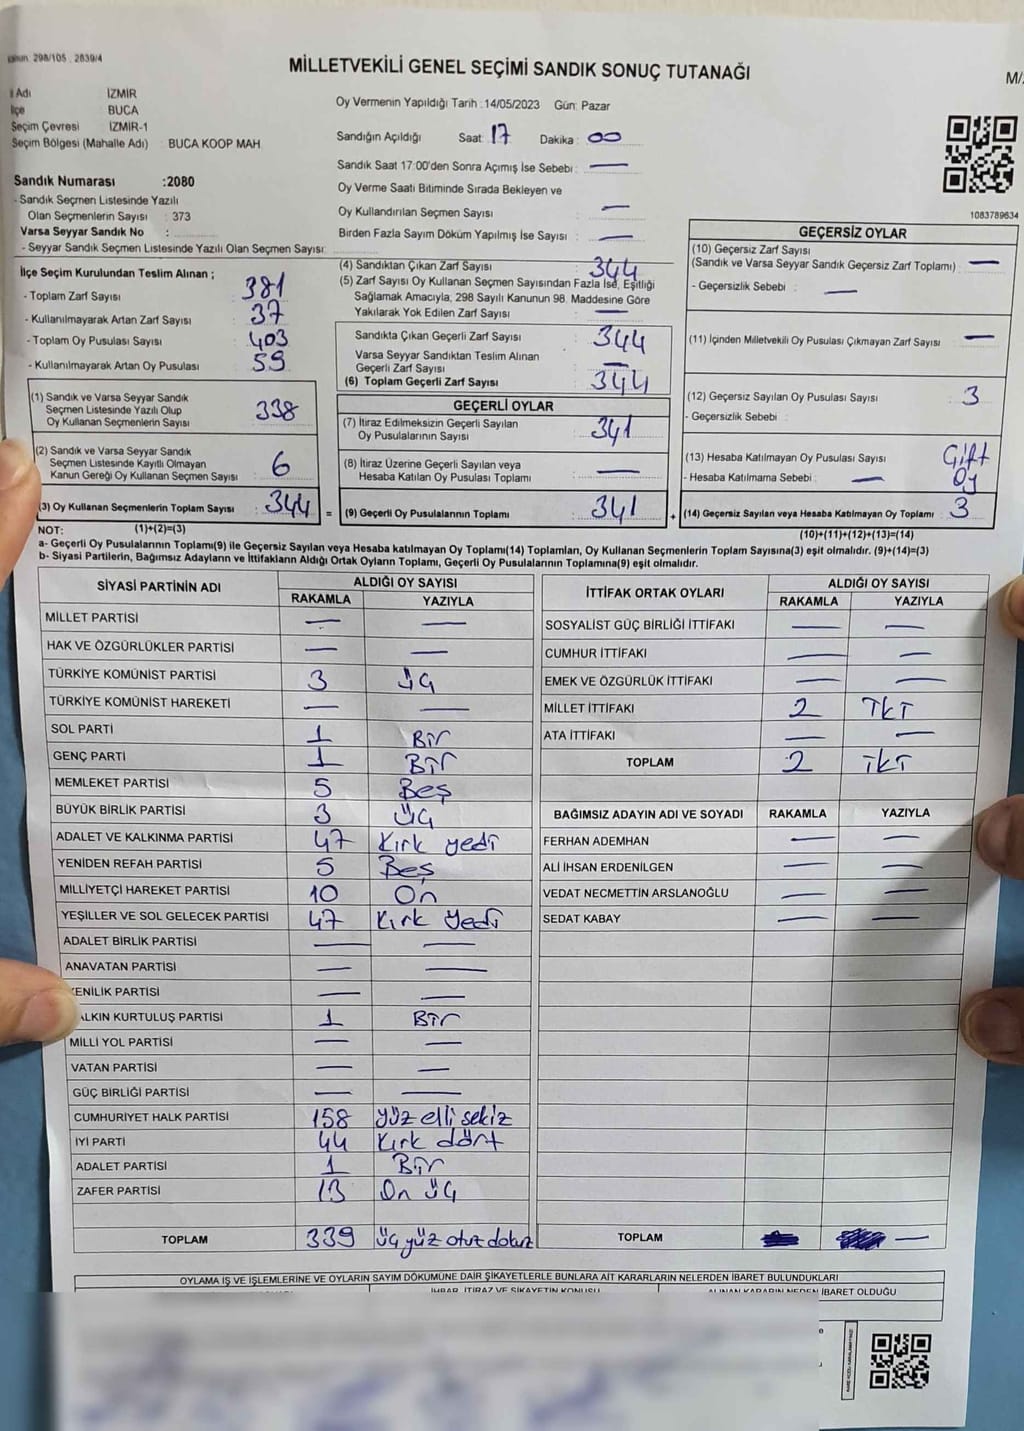 Kanun: 298/105 , 2839/4
MİLLETVEKİLİ GENEL SEÇİMİ SANDIK SONUÇ TUTANAĞI
M/
İl Adı İZMİR
İlçe BUCA
Seçim Çevresi İZMİR-1
Seçim Bölgesi (Mahalle Adı) BUCA KOOP MAH.
Sandık Numarası :2080
- Sandık Seçmen Listesinde Yazılı
Olan Seçmenlerin Sayısı : 373
Varsa Seyyar Sandık No :
- Seyyar Sandık Seçmen Listesinde Yazılı Olan Seçmen Sayısı:
Oy Vermenin Yapıldığı Tarih :14/05/2023 Gün: Pazar
Sandığın Açıldığı Saat: 17 Dakika : 00
Sandık Saat 17:00'den Sonra Açımış İse Sebebi : —
Oy Verme Saati Bitiminde Sırada Bekleyen ve
Oy Kullandırılan Seçmen Sayısı —
Birden Fazla Sayım Döküm Yapılmış İse Sayısı : —
1083789634
İlçe Seçim Kurulundan Teslim Alınan ;
- Toplam Zarf Sayısı : 381
- Kullanılmayarak Artan Zarf Sayısı : 37
- Toplam Oy Pusulası Sayısı : 403
- Kullanılmayarak Artan Oy Pusulası : 59
(1) Sandık ve Varsa Seyyar Sandık
Seçmen Listesinde Yazılı Olup
Oy Kullanan Seçmenlerin Sayısı : 338
(2) Sandık ve Varsa Seyyar Sandık
Seçmen Listesinde Kayıtlı Olmayan
Kanun Gereği Oy Kullanan Seçmen Sayısı : 6
(3) Oy Kullanan Seçmenlerin Toplam Sayısı : 344 =
(4) Sandıktan Çıkan Zarf Sayısı : 344
(5) Zarf Sayısı Oy Kullanan Seçmen Sayısından Fazla İse, Eşitliği
Sağlamak Amacıyla, 298 Sayılı Kanunun 98. Maddesine Göre
Yakılarak Yok Edilen Zarf Sayısı : —
Sandıkta Çıkan Geçerli Zarf Sayısı : 344
Varsa Seyyar Sandıktan Teslim Alınan
Geçerli Zarf Sayısı : —
(6) Toplam Geçerli Zarf Sayısı : 344
GEÇERLİ OYLAR
(7) İtiraz Edilmeksizin Geçerli Sayılan
Oy Pusulalarının Sayısı : 341
(8) İtiraz Üzerine Geçerli Sayılan veya
Hesaba Katılan Oy Pusulası Toplamı : —
(9) Geçerli Oy Pusulalarının Toplamı : 341 +
GEÇERSİZ OYLAR
(10) Geçersiz Zarf Sayısı
(Sandık ve Varsa Seyyar Sandık Geçersiz Zarf Toplamı) : —
- Geçersizlik Sebebi : —
(11) İçinden Milletvekili Oy Pusulası Çıkmayan Zarf Sayısı : —
(12) Geçersiz Sayılan Oy Pusulası Sayısı : 3
- Geçersizlik Sebebi :
(13) Hesaba Katılmayan Oy Pusulası Sayısı : Çift
- Hesaba Katılmama Sebebi : — Oy
(14) Geçersiz Sayılan veya Hesaba Katılmayan Oy Toplamı : 3
NOT: (1)+(2)=(3)
(10)+(11)+(12)+(13)=(14)
a- Geçerli Oy Pusulalarının Toplamı(9) ile Geçersiz Sayılan veya Hesaba katılmayan Oy Toplamı(14) Toplamları, Oy Kullanan Seçmenlerin Toplam Sayısına(3) eşit olmalıdır. (9)+(14)=(3)
b- Siyasi Partilerin, Bağımsız Adayların ve İttifakların Aldığı Ortak Oyların Toplamı, Geçerli Oy Pusulalarının Toplamına(9) eşit olmalıdır.
SİYASİ PARTİNİN ADI ALDIĞI OY SAYISI
RAKAMLA YAZIYLA
MİLLET PARTİSİ — —
HAK VE ÖZGÜRLÜKLER PARTİSİ — —
TÜRKİYE KOMÜNİST PARTİSİ 3 üç
TÜRKİYE KOMÜNİST HAREKETİ — —
SOL PARTİ 1 Bir
GENÇ PARTİ 1 Bir
MEMLEKET PARTİSİ 5 Beş
BÜYÜK BİRLİK PARTİSİ 3 üç
ADALET VE KALKINMA PARTİSİ 47 Kırk yedi
YENİDEN REFAH PARTİSİ 5 Beş
MİLLİYETÇİ HAREKET PARTİSİ 10 On
YEŞİLLER VE SOL GELECEK PARTİSİ 47 Kırk yedi
ADALET BİRLİK PARTİSİ — —
ANAVATAN PARTİSİ — —
YENİLİK PARTİSİ — —
HALKIN KURTULUŞ PARTİSİ 1 Bir
MİLLİ YOL PARTİSİ — —
VATAN PARTİSİ — —
GÜÇ BİRLİĞİ PARTİSİ — —
CUMHURİYET HALK PARTİSİ 158 yüz elli sekiz
İYİ PARTİ 44 Kırk dört
ADALET PARTİSİ 1 Bir
ZAFER PARTİSİ 13 On üç
TOPLAM 339 üç yüz otuz dokuz
İTTİFAK ORTAK OYLARI ALDIĞI OY SAYISI
RAKAMLA YAZIYLA
SOSYALİST GÜÇ BİRLİĞİ İTTİFAKI — —
CUMHUR İTTİFAKI — —
EMEK VE ÖZGÜRLÜK İTTİFAKI — —
MİLLET İTTİFAKI 2 İki
ATA İTTİFAKI — —
TOPLAM 2 İki
BAĞIMSIZ ADAYIN ADI VE SOYADI RAKAMLA YAZIYLA
FERHAN ADEMHAN — —
ALİ İHSAN ERDENİLGEN — —
VEDAT NECMETTİN ARSLANOĞLU — —
SEDAT KABAY — —
TOPLAM —
OYLAMA İŞ VE İŞLEMLERİNE VE OYLARIN SAYIM DÖKÜMÜNE DAİR ŞİKAYETLERLE BUNLARA AİT KARARLARIN NELERDEN İBARET BULUNDUKLARI
İHBAR, İTİRAZ VE ŞİKAYETİN KONUSU ALINAN KARARIN NEDEN İBARET OLDUĞU